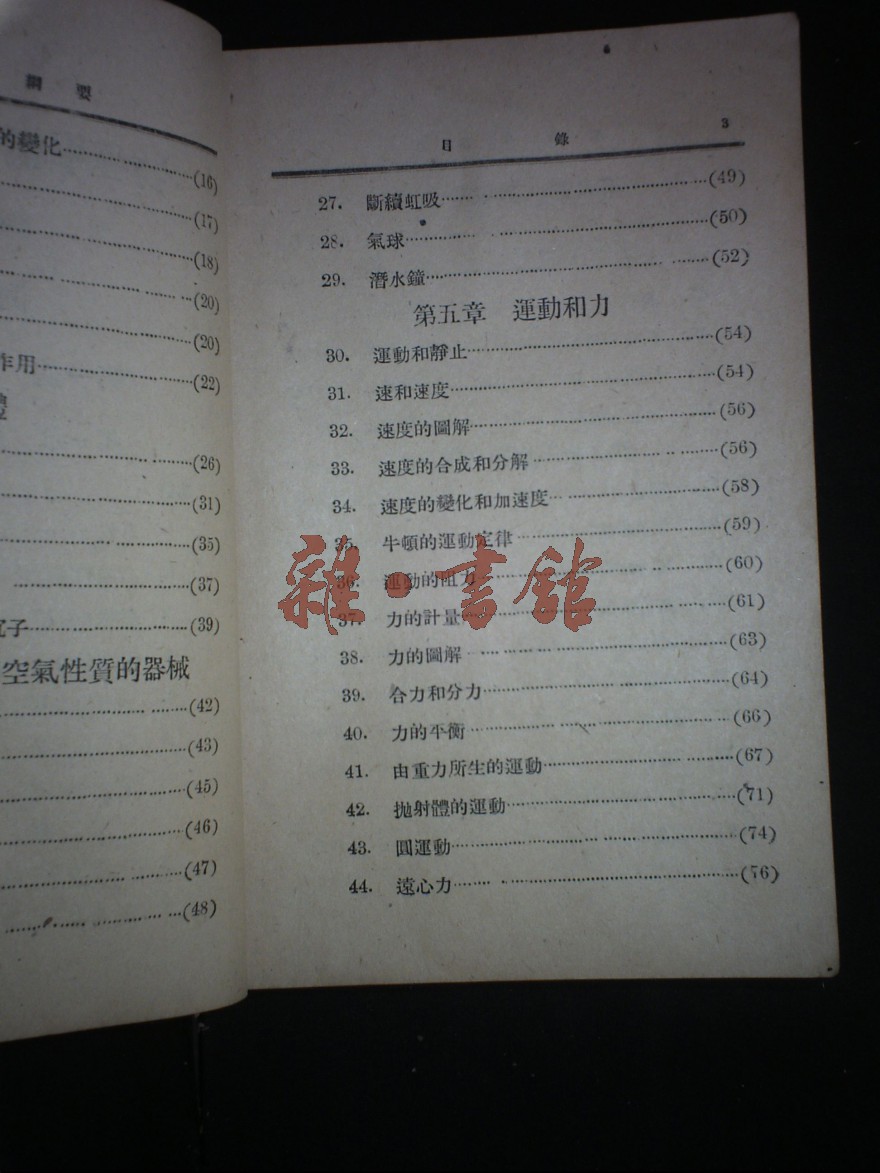 綱 要
的變化……(16)
……(17)
……(18)
……(20)
……(20)
作用……(22)
……(26)
……(31)
……(35)
……(37)
子……(39)
空氣性質的器械
……(42)
……(43)
……(45)
……(46)
……(47)
……(48)
目 錄 3
27. 斷續虹吸……(49)
28. 氣球……(50)
29. 潛水鐘……(52)
第五章 運動和力
30. 運動和靜止……(54)
31. 速和速度……(54)
32. 速度的圖解……(56)
33. 速度的合成和分解……(56)
34. 速度的變化和加速度……(58)
35. 牛頓的運動定律……(59)
36. 運動的阻力……(60)
37. 力的計量……(61)
38. 力的圖解……(63)
39. 合力和分力……(64)
40. 力的平衡……(66)
41. 由重力所生的運動……(67)
42. 拋射體的運動……(71)
43. 圓運動……(74)
44. 遠心力……(76)
雜·書館